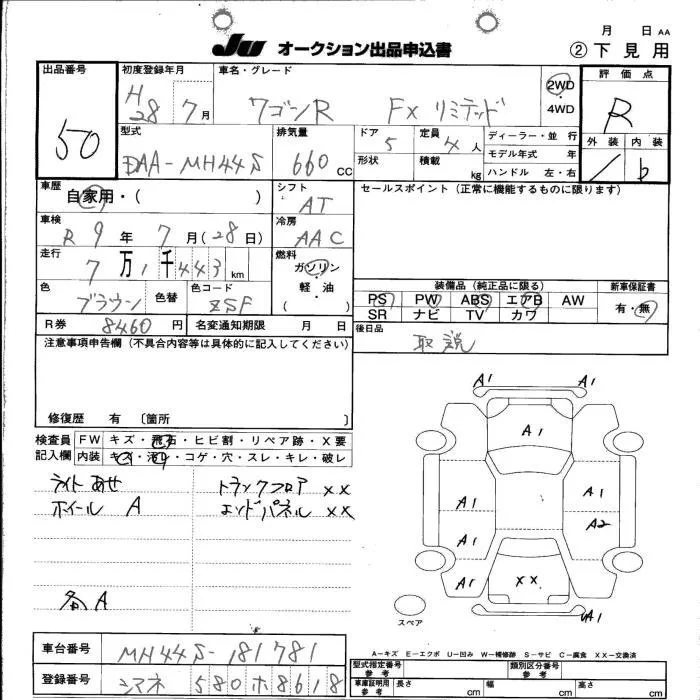 月 日 AA
JU オークション出品申込書 ②下見用
出品番号 初度登録年月 車名・グレード 評価点
50 H28年7月 ワゴンR FXリミテッド 2WD・4WD R
型式 排気量 ドア 定員 ディーラー・並行 外装 内装
DAA-MH44S 660cc 5 4人 モデル年式 年
形状 積載 kg ハンドル 左・右 / b
車歴 自家用・( ) シフト AT セールスポイント(正常に機能するものに限ります)
車検 R9年7月(28日) 冷房 AAC
走行 7万1千443km 燃料 ガソリン・軽油( )
装備品(純正品に限る) 新車保証書
色 ブラウン 色替 色コード ZSF
PS PW ABS エアB AW 有・無
SR ナビ TV カワ
R券 8460円 名変通知期限 月 日 後日品
取説
注意事項申告欄(不具合内容等は具体的に記入してください)
修復歴 有 〔箇所 〕
検査員記入欄
FW キズ・飛石・ヒビ割・リペア跡・X要
内装 キズ・汚れ・コゲ・穴・スレ・キレ・破レ
ライトあせ トランクフロア XX
ホイール A エンドパネル XX
各A
A1 A1
A1
A1 A1
A1 A2
A1 XX A1
スペア
A-キズ E-エクボ U-凹み W-補修跡 S-サビ C-腐食 XX-交換済
車台番号 MH44S-181781
登録番号 シマネ 580 ホ 8618
型式指定番号 参考 類別区分番号 参考
車庫証明用 参考 長さ cm 幅 cm 高さ cm